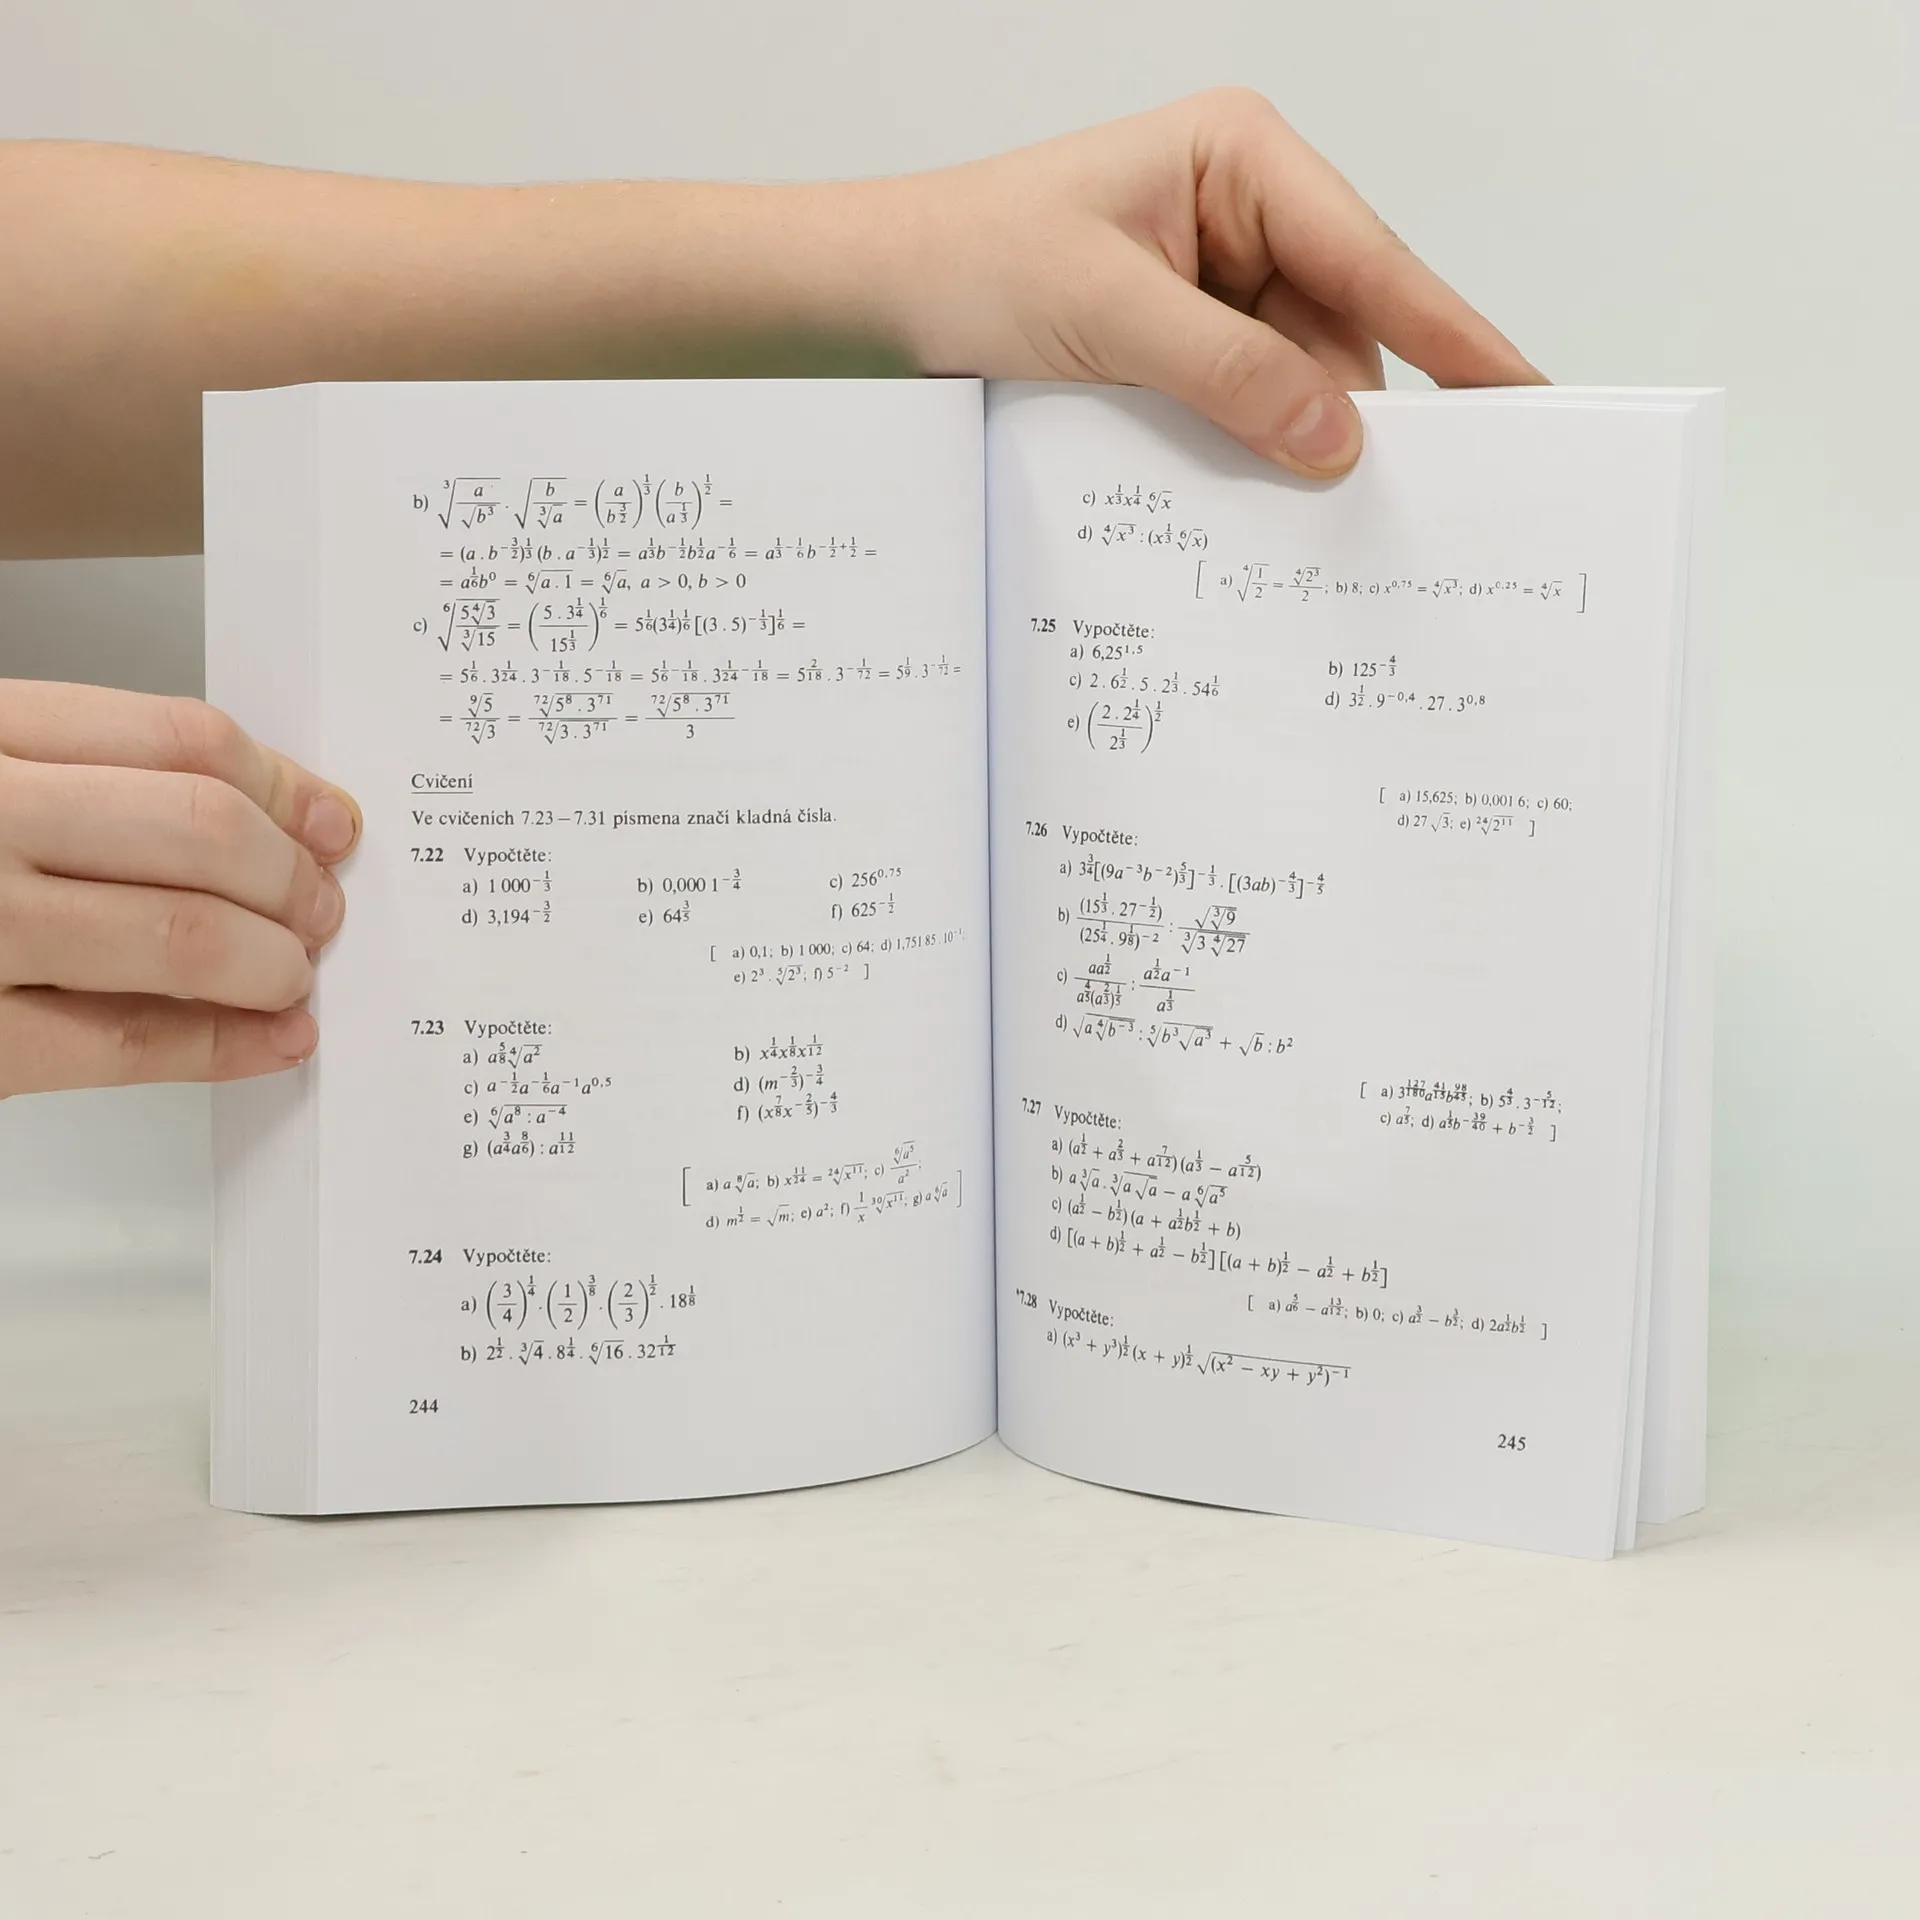 b) ∛(a/√(b³)) . √(b/∛a) = (a/b^(3/2))^(1/3) (b/a^(1/3))^(1/2) =
= (a . b^(-3/2))^(1/3) (b . a^(-1/3))^(1/2) = a^(1/3)b^(-1/2)b^(1/2)a^(-1/6) = a^(1/3-1/6)b^(-1/2+1/2) =
= a^(1/6)b⁰ = ⁶√(a . 1) = ⁶√a, a > 0, b > 0
c) ⁶√(5⁴√3/∛15) = (5 . 3^(1/4)/15^(1/3))^(1/6) = 5^(1/6)(3^(1/4))^(1/6) [(3 . 5)^(-1/3)]^(1/6) =
= 5^(1/6) . 3^(1/24) . 3^(-1/18) . 5^(-1/18) = 5^(1/6-1/18) . 3^(1/24-1/18) = 5^(2/18) . 3^(-1/72) = 5^(1/9) . 3^(-1/72) =
= ⁹√5/⁷²√3 = ⁷²√(5⁸ . 3⁷¹)/⁷²√(3 . 3⁷¹) = ⁷²√(5⁸ . 3⁷¹)/3
Cvičení
Ve cvičeních 7.23 – 7.31 písmena značí kladná čísla.
7.22 Vypočtěte:
a) 1 000^(-1/3) b) 0,000 1^(-3/4) c) 256^(0,75)
d) 3,194^(-3/2) e) 64^(3/5) f) 625^(-1/2)
[ a) 0,1; b) 1 000; c) 64; d) 1,751 85 . 10⁻¹;
e) 2³ . ⁵√(2³); f) 5⁻² ]
7.23 Vypočtěte:
a) a^(5/8) ⁴√(a²) b) x^(1/4)x^(1/8)x^(1/12)
c) a^(-1/2)a^(-1/6)a⁻¹a^(0,5) d) (m^(-2/3))^(-3/4)
e) ⁶√(a⁸ : a⁻⁴) f) (x^(7/8)x^(-2/5))^(-4/3)
g) (a^(3/4)a^(8/6)) : a^(11/12)
[ a) a ⁸√a; b) x^(11/24) = ²⁴√(x¹¹); c) ⁶√(a⁵)/a²;
d) m^(1/2) = √m; e) a²; f) 1/x ³⁰√(x¹¹); g) a ⁶√a ]
7.24 Vypočtěte:
a) (3/4)^(1/4) . (1/2)^(3/8) . (2/3)^(1/2) . 18^(1/8)
b) 2^(1/2) . ∛4 . 8^(1/4) . ⁶√16 . 32^(1/12)
244
c) x^(1/3)x^(1/4) ⁶√x
d) ⁴√(x³) : (x^(1/3) ⁶√x)
[ a) ⁴√(1/2) = ⁴√(2³)/2; b) 8; c) x^(0,75) = ⁴√(x³); d) x^(0,25) = ⁴√x ]
7.25 Vypočtěte:
a) 6,25^(1,5) b) 125^(-4/3)
c) 2 . 6^(1/2) . 5 . 2^(1/3) . 54^(1/6) d) 3^(1/2) . 9^(-0,4) . 27 . 3^(0,8)
e) (2 . 2^(1/4)/2^(1/3))^(1/2)
[ a) 15,625; b) 0,001 6; c) 60;
d) 27 √3; e) ²⁴√(2¹¹) ]
7.26 Vypočtěte:
a) 3^(3/4)[(9a⁻³b⁻²)^(5/3)]^(-1/3) . [(3ab)^(-4/3)]^(-4/5)
b) (15^(1/3) . 27^(-1/2))/(25^(1/4) . 9^(1/8))⁻² : √(∛9)/∛(3 ⁴√27)
c) aa^(1/2)/(a^(4/5)(a^(2/3))^(1/5)) : a^(1/2)a⁻¹/a^(1/3)
d) √(a ⁴√(b⁻³)) : ⁵√(b³√(a³)) + √b : b²
[ a) 3^(127/180)a^(41/15)b^(98/45); b) 5^(4/3) . 3^(-5/12);
c) a^(7/5); d) a^(1/5)b^(-39/40) + b^(-3/2) ]
7.27 Vypočtěte:
a) (a^(1/2) + a^(2/3) + a^(7/12)) (a^(1/3) − a^(5/12))
b) a ∛a . ∛(a √a) − a ⁶√(a⁵)
c) (a^(1/2) − b^(1/2)) (a + a^(1/2)b^(1/2) + b)
d) [(a + b)^(1/2) + a^(1/2) − b^(1/2)] [(a + b)^(1/2) − a^(1/2) + b^(1/2)]
[ a) a^(5/6) − a^(13/12); b) 0; c) a^(3/2) − b^(3/2); d) 2a^(1/2)b^(1/2) ]
*7.28 Vypočtěte:
a) (x³ + y³)^(1/2) (x + y)^(1/2) √((x² − xy + y²)⁻¹)
245